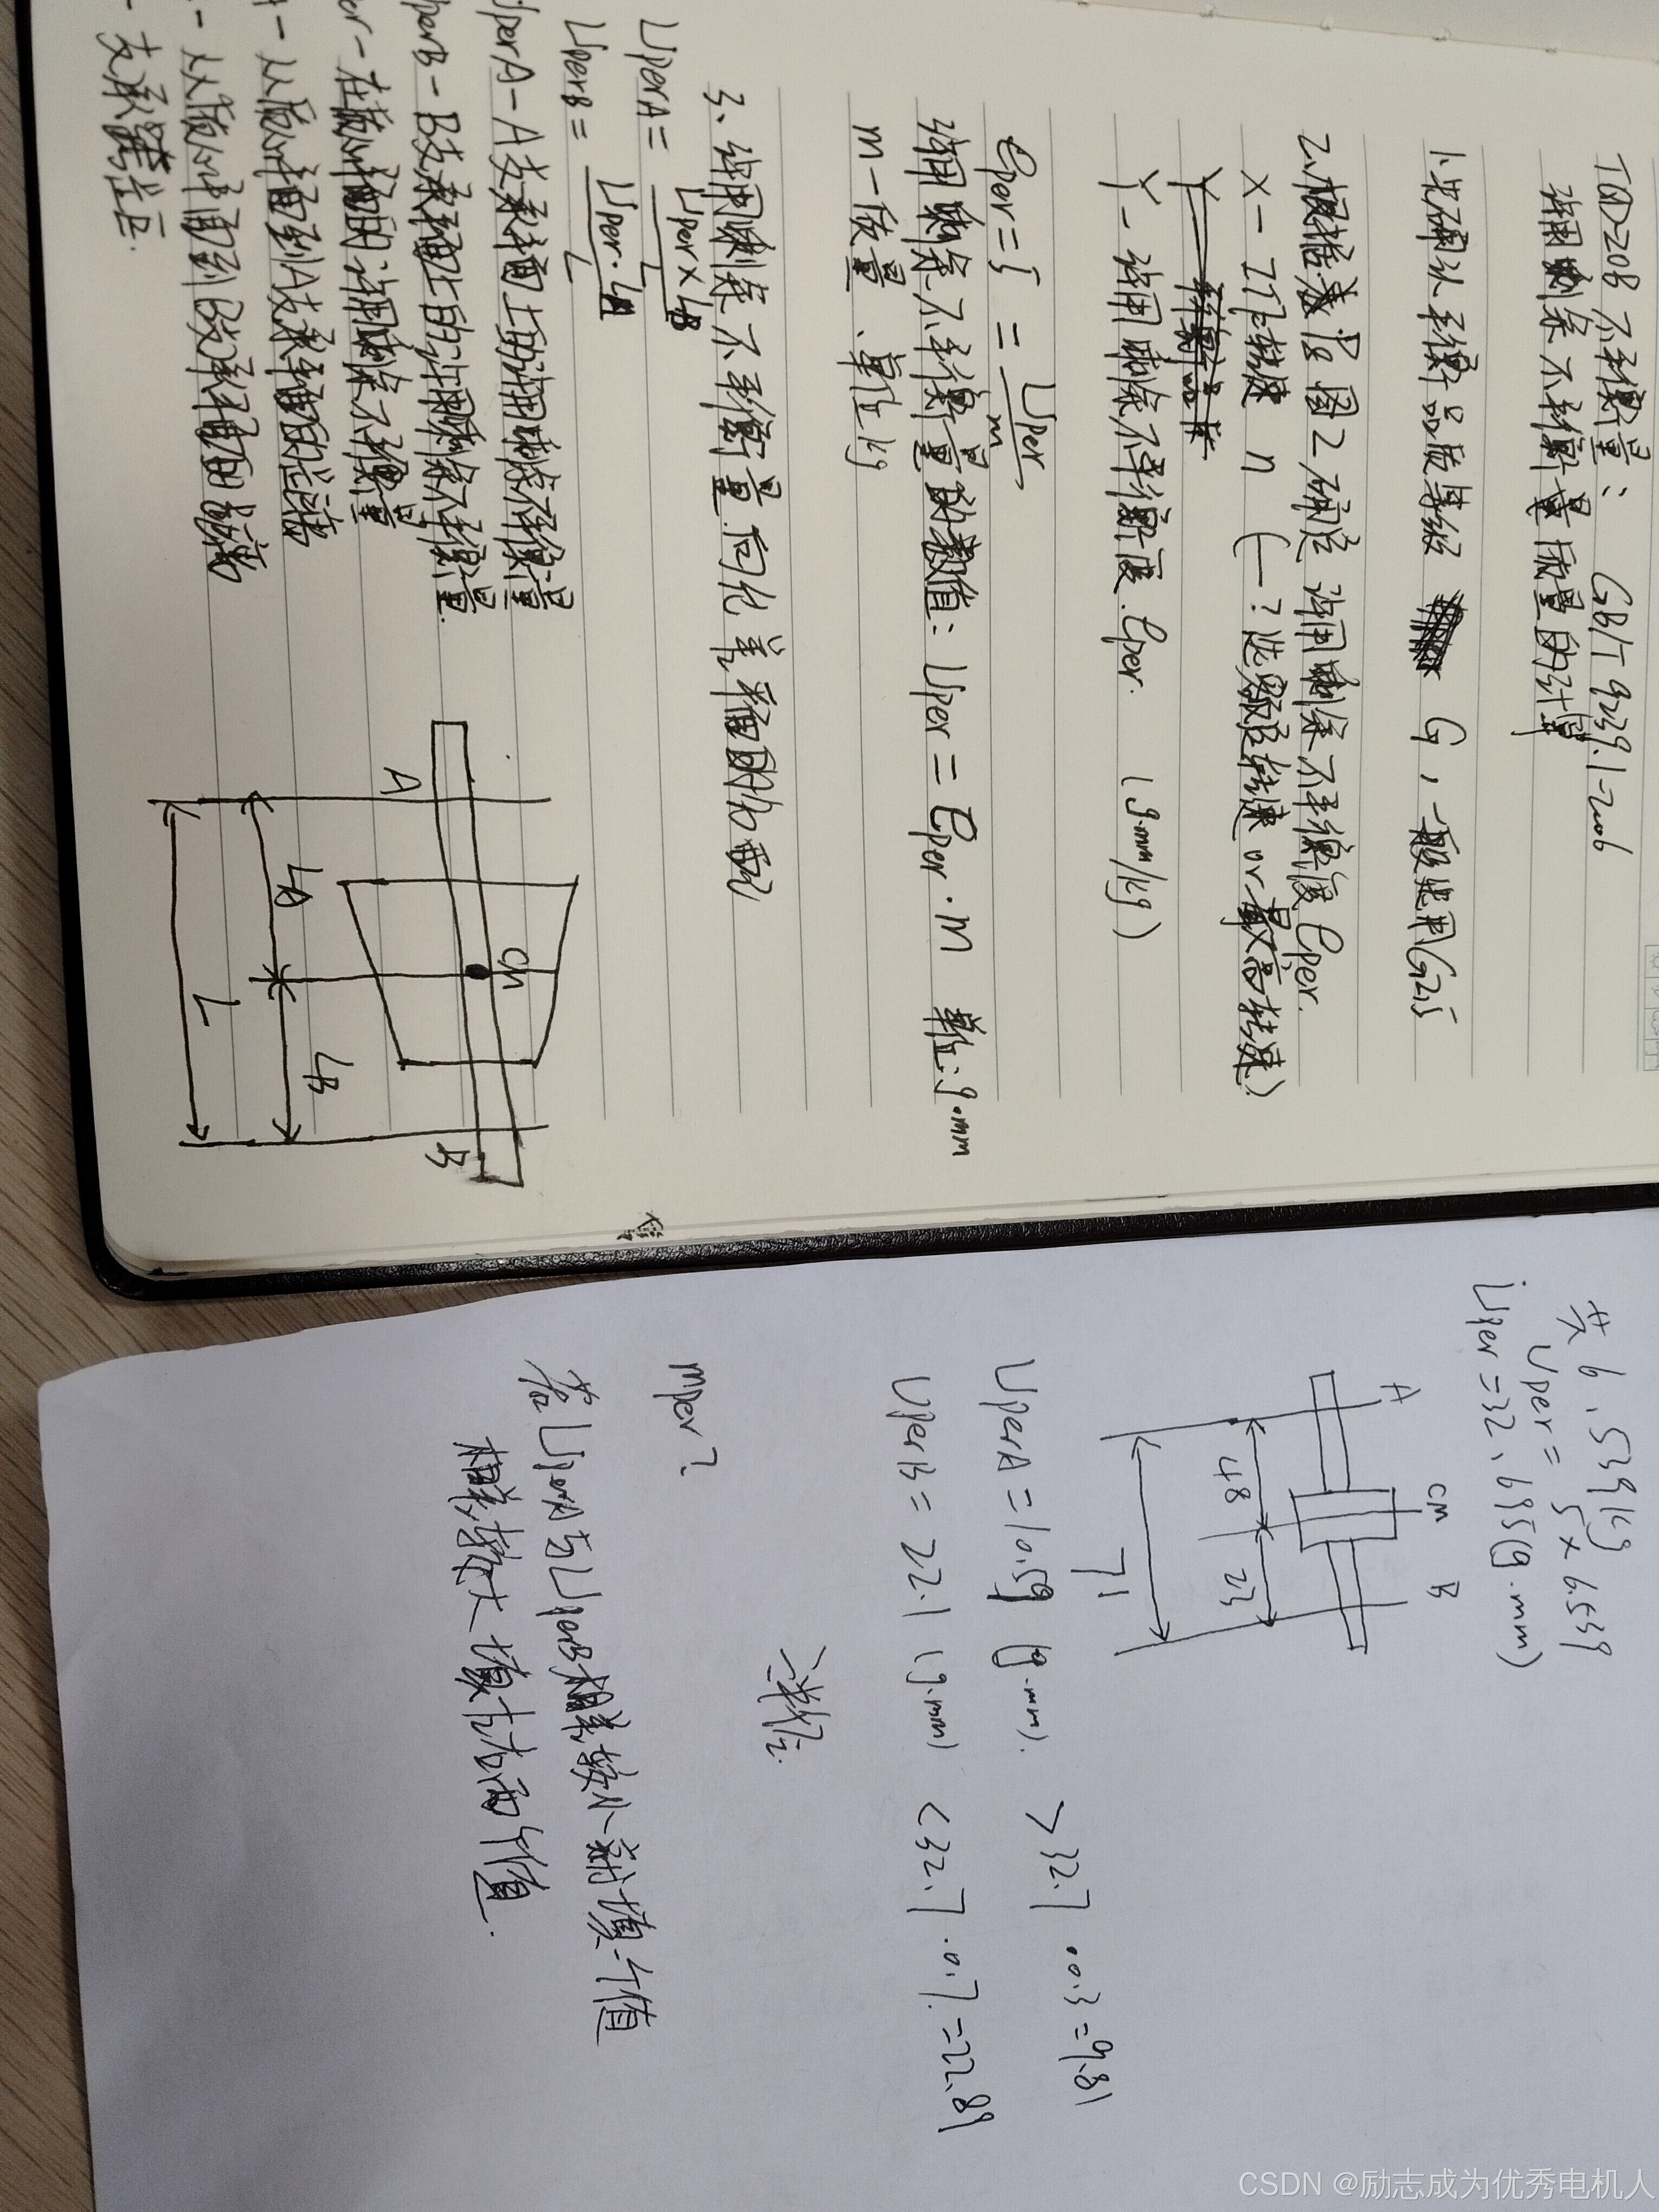 TQD208 不平衡量: GB/T 9239.1-2006
许用剩余不平衡量质量的计算
1.先确认平衡品质等级 G，一般选用G2.5
2.根据表 图2确定 许用剩余不平衡度 eper.
X — 工作转速 n (—? 选额定转速 or 最高转速)
Y — 许用剩余不平衡度 eper. (g.mm/kg)
eper = 5 = Uper/m
许用剩余不平衡量的数值: Uper = eper · m 单位: g·mm
m — 质量、单位kg
3、许用剩余不平衡量向允差平面的分配
UperA = Uper × LB / L
UperB = Uper · LA / L
UperA — A支承平面上的许用剩余不平衡量
perB — B支承平面上的许用剩余不平衡量.
er — 在质心平面的许用剩余不平衡量
A — 从质心平面到A支承平面的距离
- 从质心平面到B支承平面的距离
- 支承跨距.
A
CM
B
LA
LB
L
共 6.539kg
Uper = 5 × 6.539
Uper = 32.695(g.mm)
A
CM
B
48
23
71
UperA = 10.59 (g.mm). > 32.7 · 0.3 = 9.81
UperB = 22.1 (g.mm) < 32.7 · 0.7. = 22.89
mper?
若UperA与UperB相差较小 则填一个值
相差较大 填左右两个值.
CSDN @励志成为优秀电机人